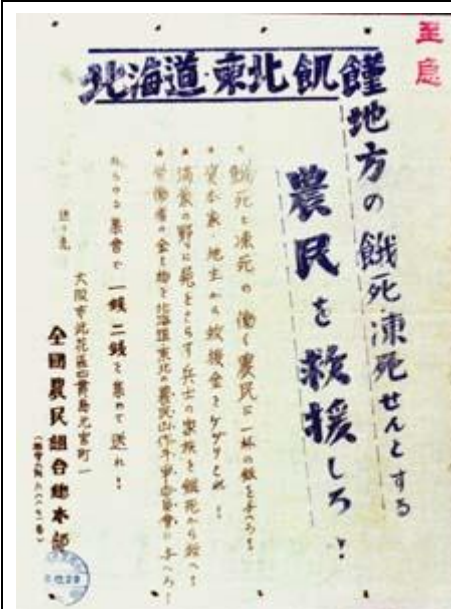 至急
北海道・東北飢饉
地方の餓死凍死せんとする
農民を救援しろ！
・餓死と凍死の働く農民に一杯の飯を与へろ！
・資本家 地主から救援金を
・満蒙の野に屍をさらす兵士の家族を餓死から救へ！
・労働者の金と物を北海道東北の農民
あらゆる集會で一銭二銭を集めて送れ！
送り先
大阪市此花區四貫島元宮町一
全國農民組合總本部